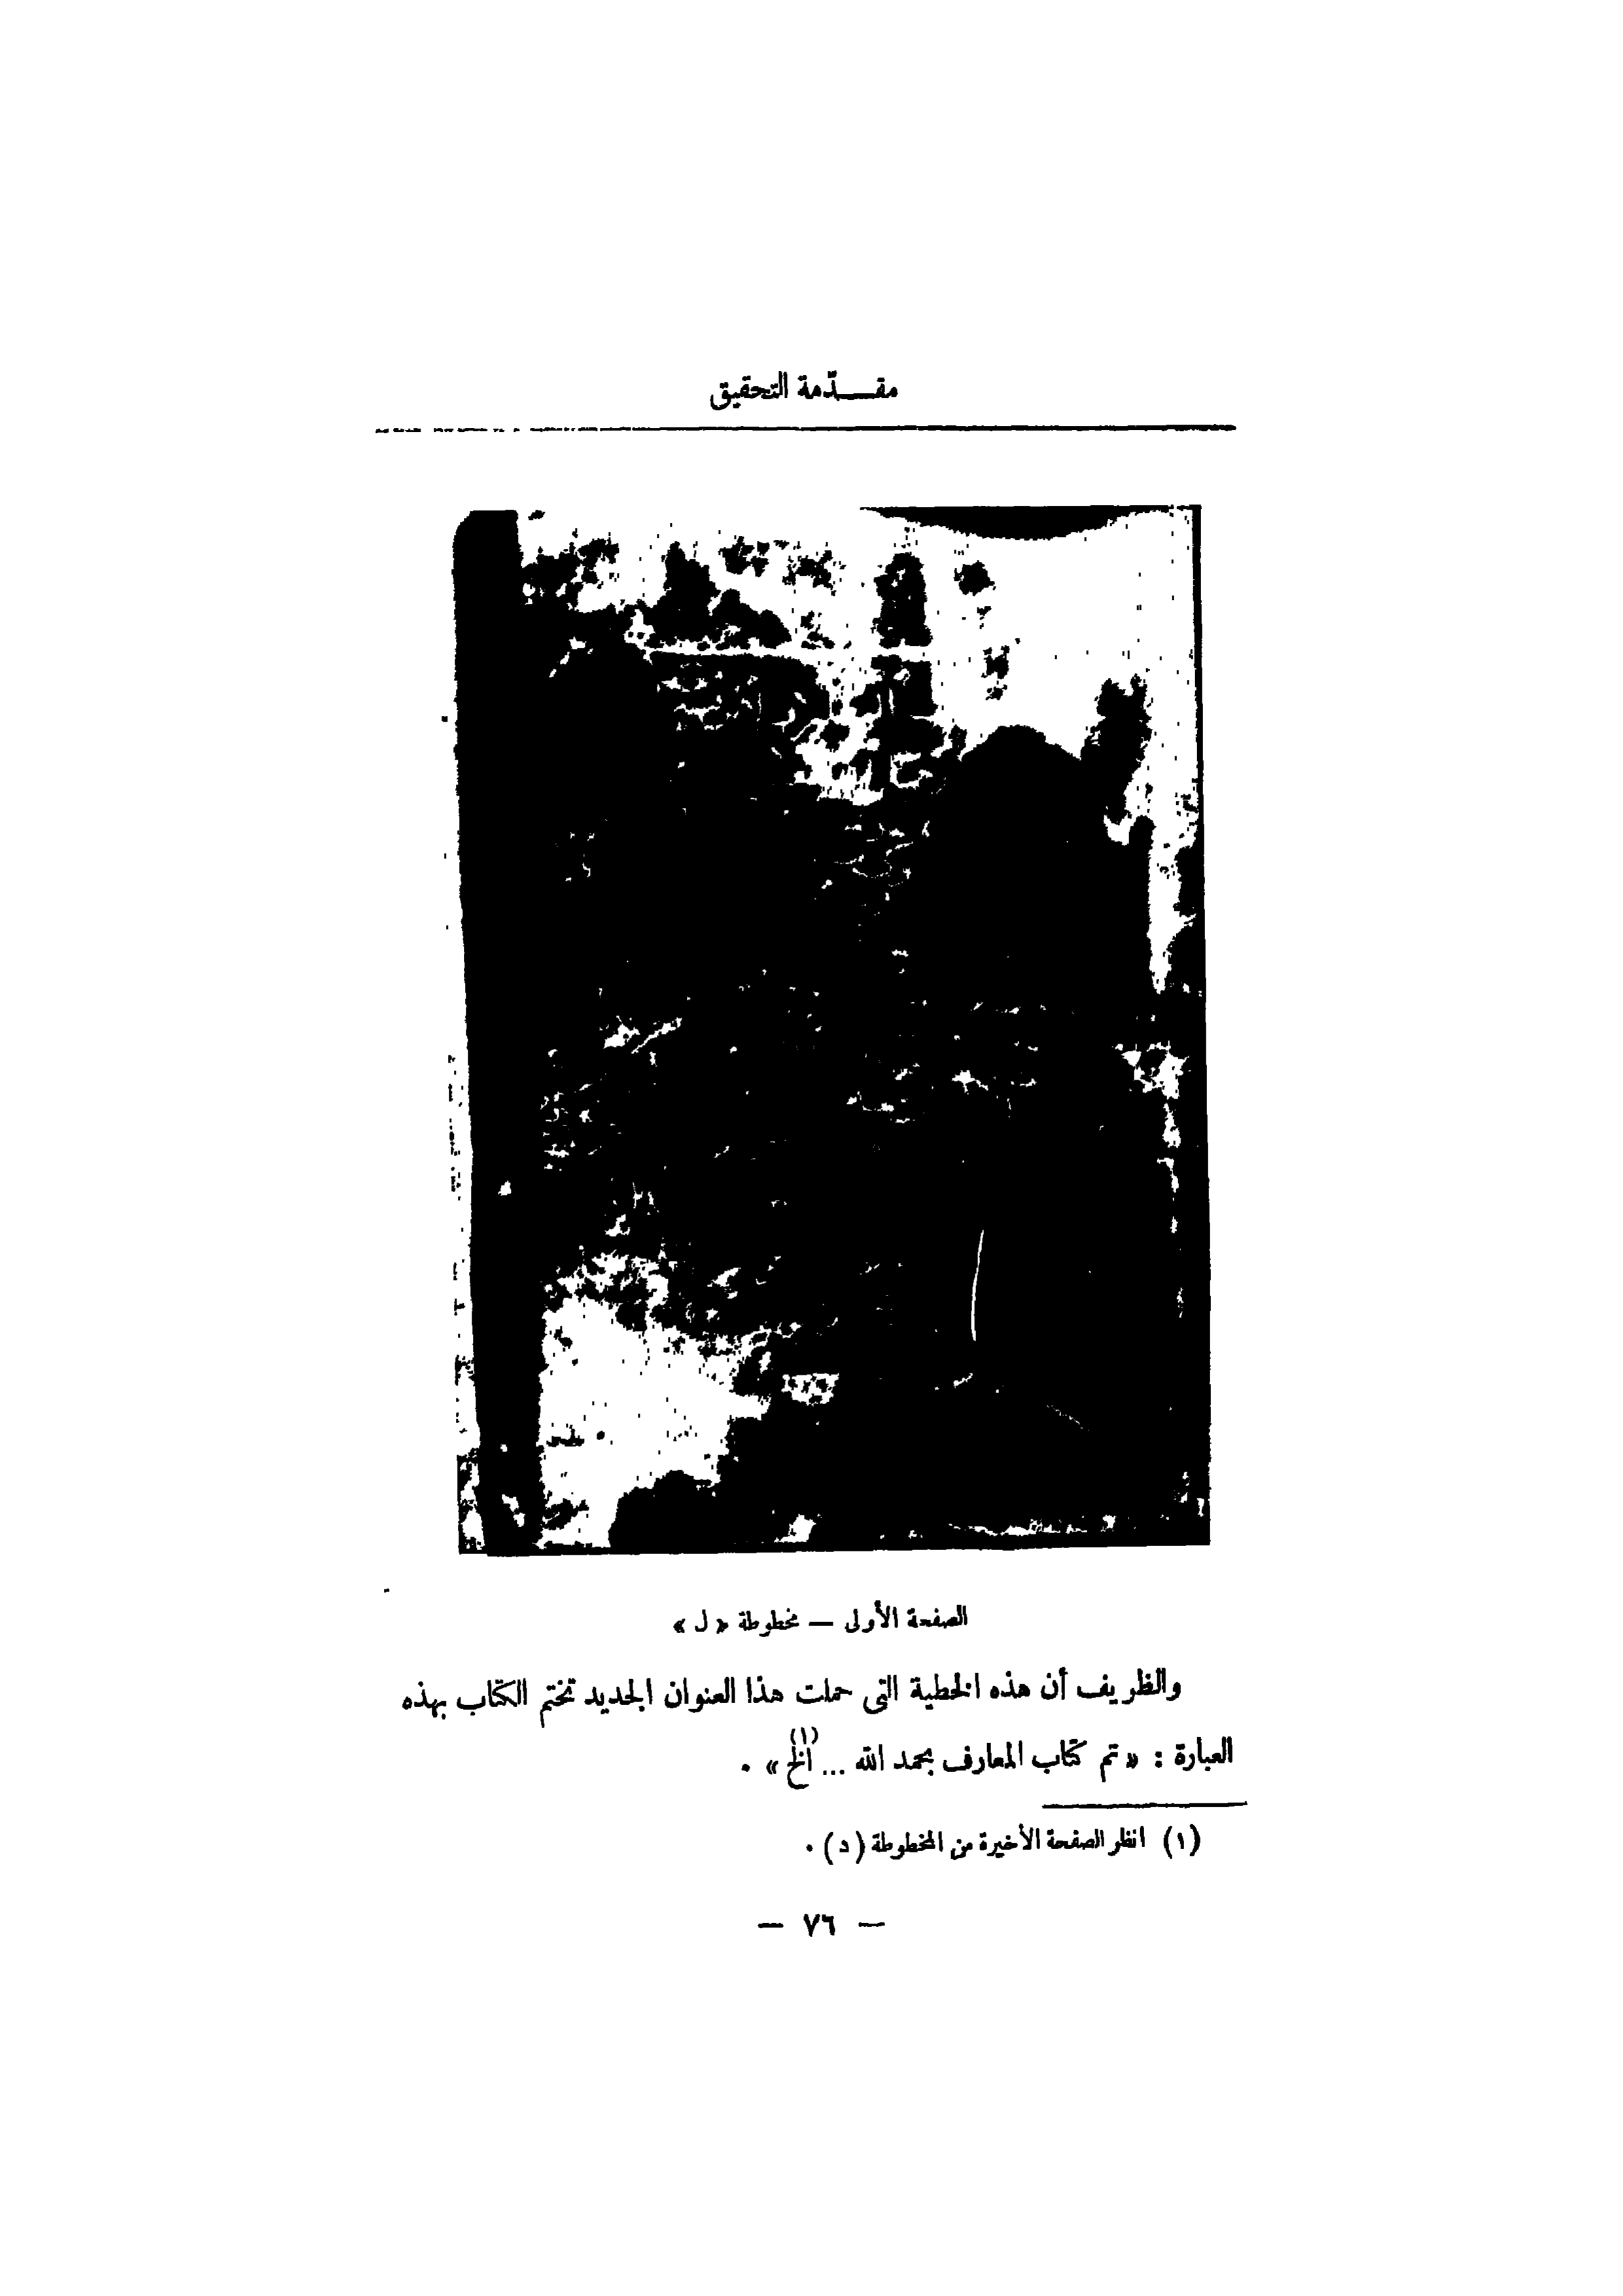 مقدّمة التحقيق
الصفحة الأولى — مخطوطة « ل »
والظريف أن هذه الخطية التى حملت هذا العنوان الجديد تختم الكتاب بهذه
العبارة : « تم كتاب المعارف بحمد الله ... الخ(١) » .
(١) انظر الصفحة الأخيرة من المخطوطة (د) .
— ٧٦ —